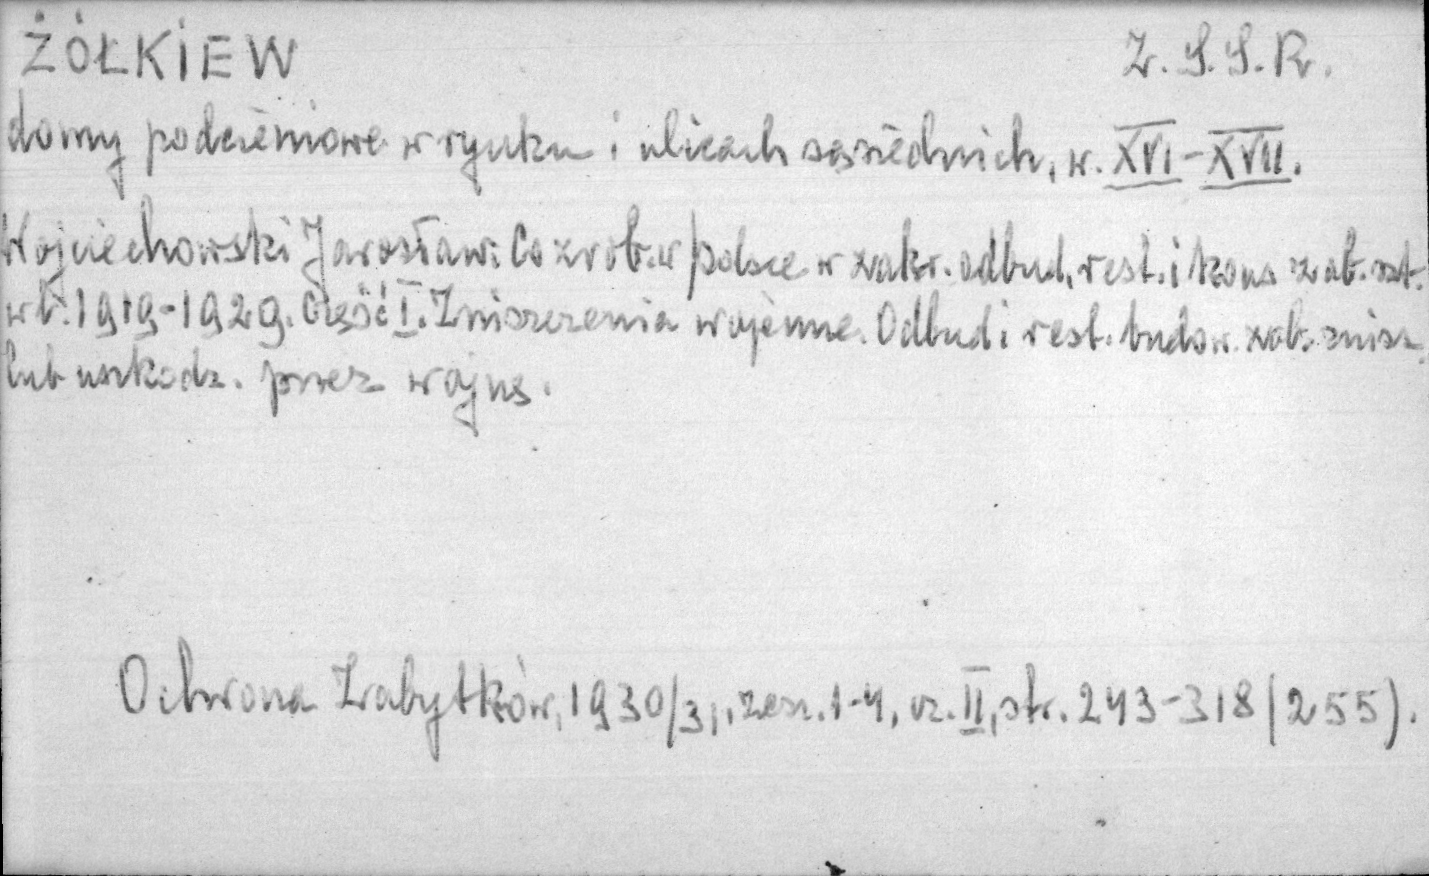 ŻÓŁKIEW
Z.S.S.R.
domy podcieniowe w rynku i ulicach sąsiednich, w. XVI-XVII.
Wojciechowski Jarosław: Co zrob. w Polsce w zakr. odbud., rest. i kons. zab. szt.
w l. 1919-1929. Część I. Zniszczenia wojenne. Odbud. i rest. budow. zab. znisz.
lub uszkodz. przez wojnę.
Ochrona Zabytków, 1930/31, zesz. 1-4, cz. II, str. 243-318 (255).